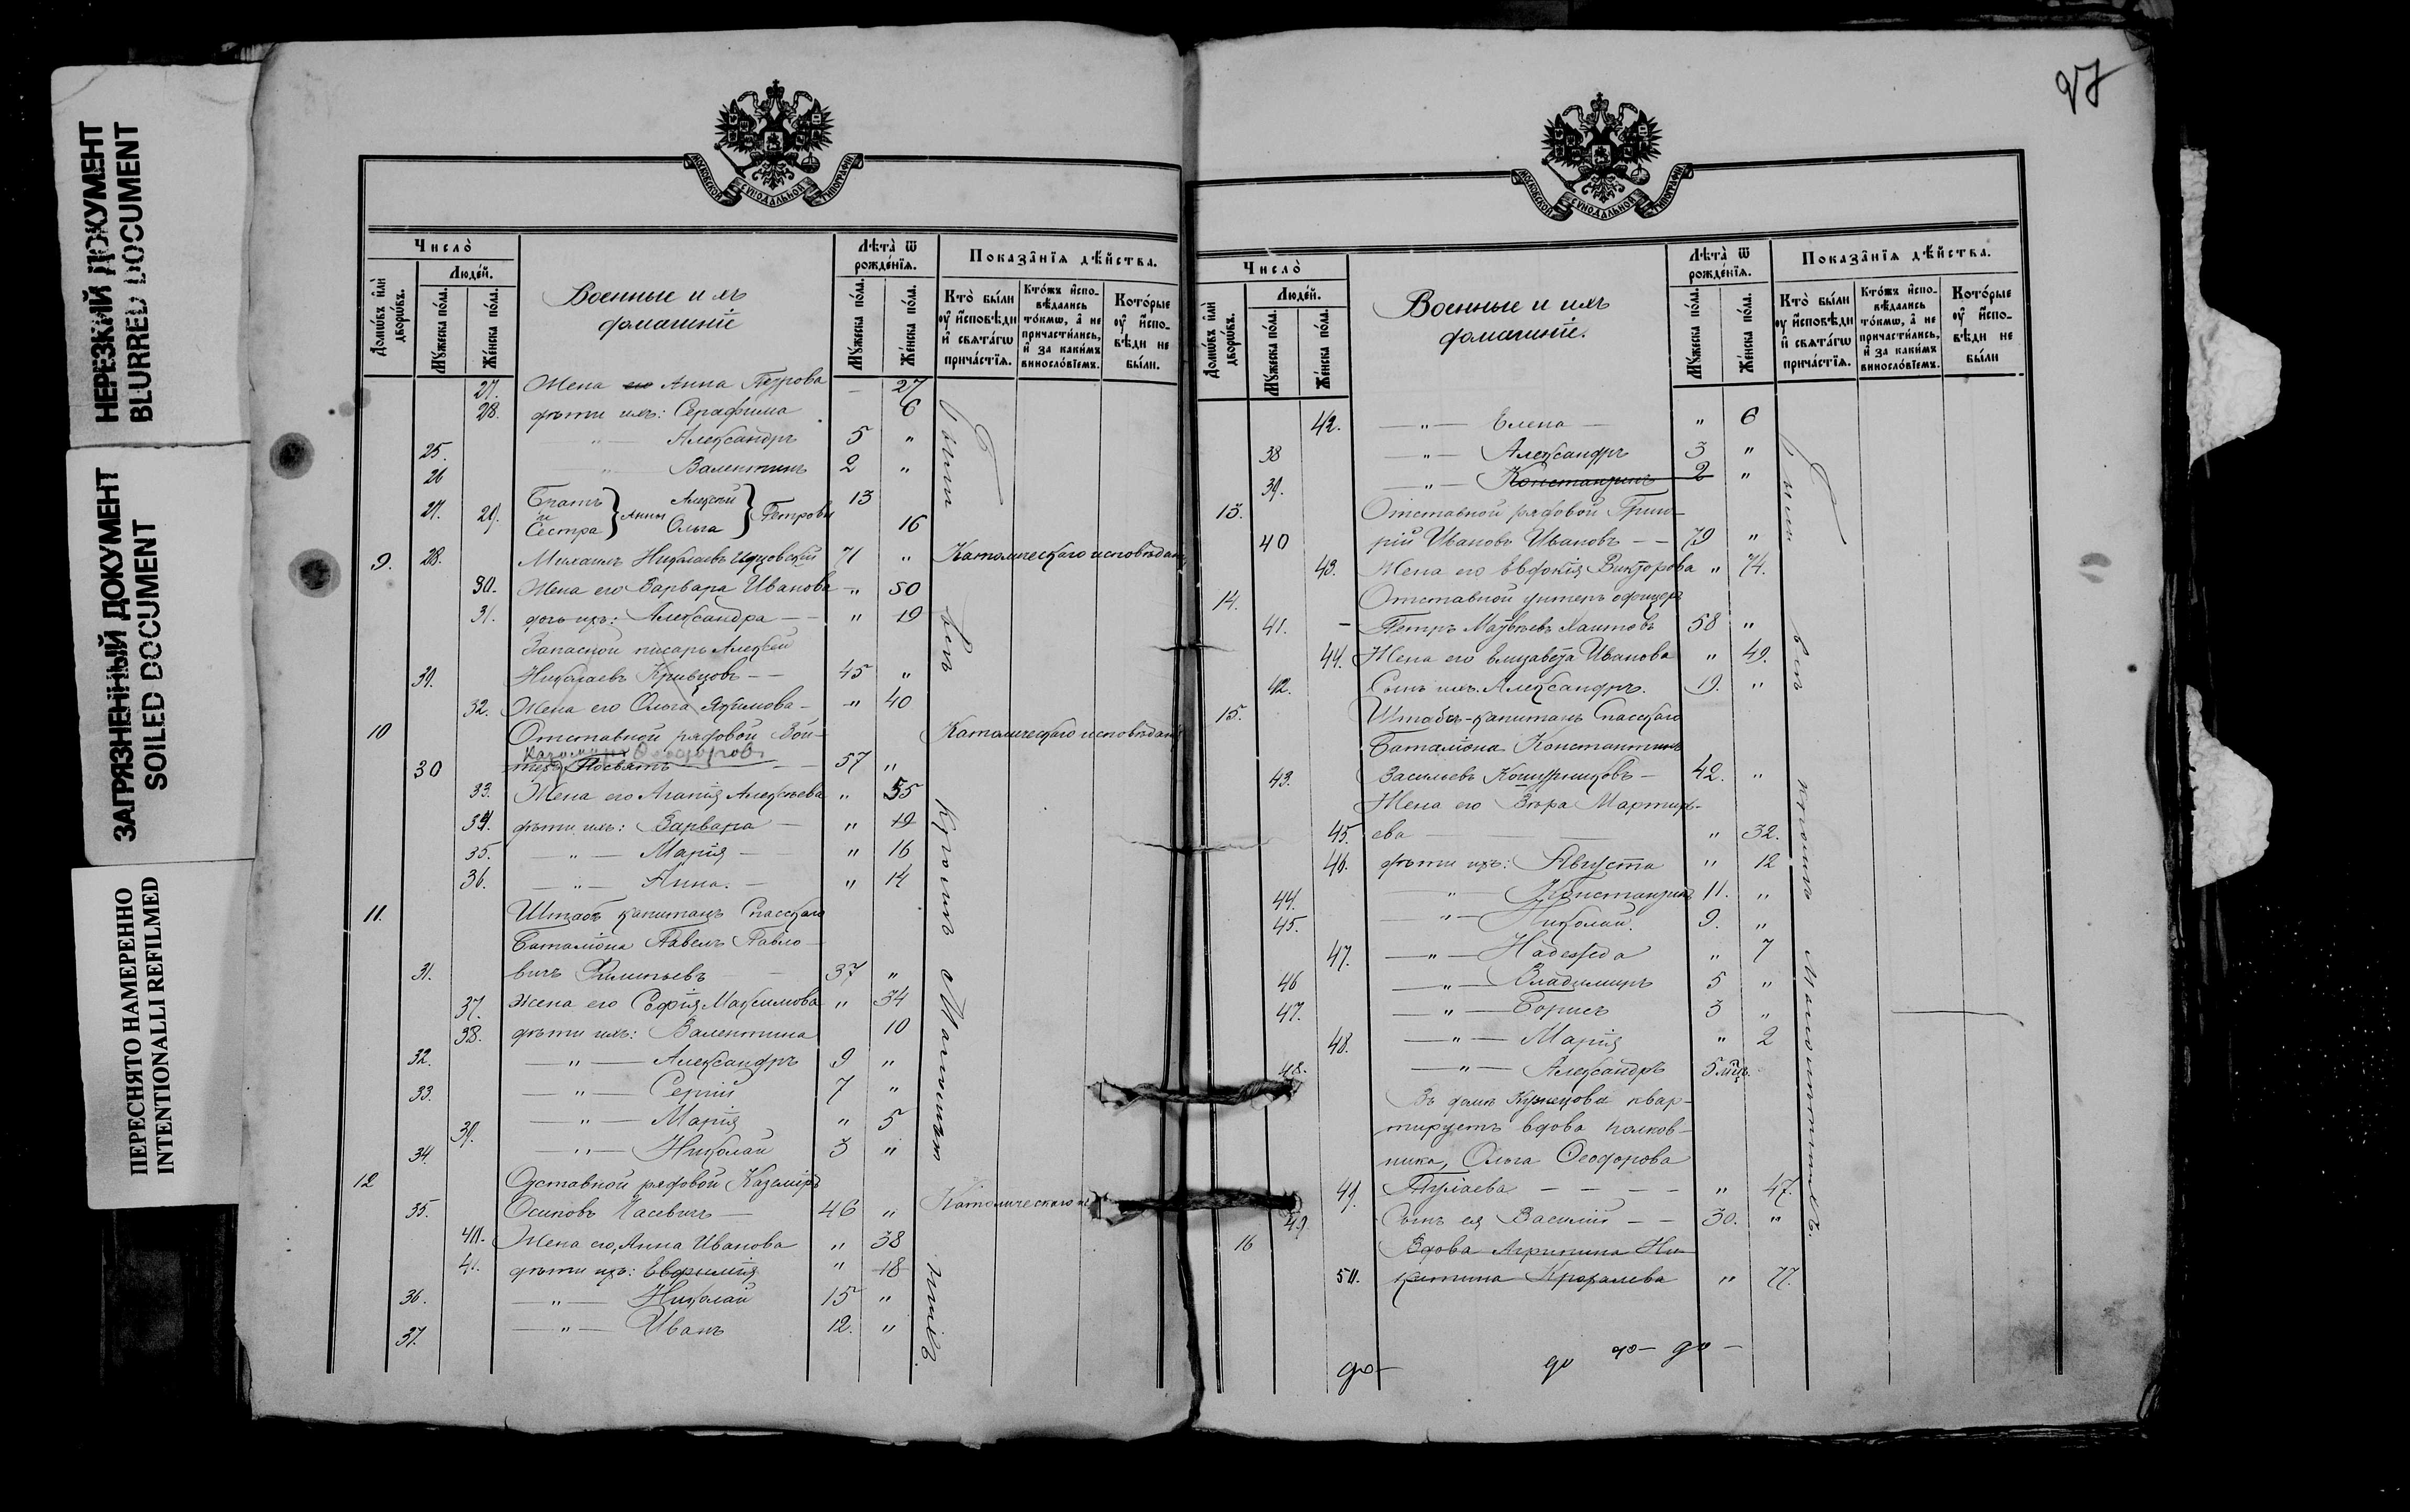 НЕРЕЗКИЙ ДОКУМЕНТ
BLURRED DOCUMENT
ЗАГРЯЗНЕННЫЙ ДОКУМЕНТ
SOILED DOCUMENT
ПЕРЕСНЯТО НАМЕРЕННО
INTENTIONALLI REFILMED
МОСКОВСКОЙ СѴНОДАЛЬНОЙ ТИПОГРАФІИ
Число̀
Домѡ́въ и҆лѝ дворѡ́въ.
Люде́й.
Мꙋ́жеска по́ла.
Же́нска по́ла.
Военные и ихъ
домашніе
Лѣ́та ѿ рожде́нїѧ.
Мꙋ́жеска по́ла.
Же́нска по́ла.
Показа̑нїѧ дѣ́йства.
Кто̀ бы́ли ᲂу҆ и҆сповѣ́ди и҆ свѧта́гѡ прича́стїѧ.
Кто́жъ и҆сповѣ́дались то́кмѡ, а҆ не причасти́лись, и҆ за каки́мъ виносло́вїемъ.
Кото́рые ᲂу҆ и҆сповѣ́ди не бы́ли.
27. Жена его Анна Петрова — 27
28. дѣти ихъ: Серафима 6
25. " — Александръ 5 "
26 " — Валентинъ 2 "
27. 29. Братъ и Сестра } Анны Алексѣй Ольга } Петровы 13 16
9. 28. Михаилъ Николаевъ 71 " Католическаго исповѣданія
30. Жена его Варвара Иванова " 50
31. дочь ихъ: Александра — " 19
Запасной писарь Алексѣй
39. Николаевъ Кривцовъ — 45 "
32. Жена его Ольга Якимова — " 40
10 Отставной рядовой Вой- Католическаго исповѣданія
30 57 "
33. Жена его Агапія Алексѣева " 55
34. дѣти ихъ: Варвара — " 19
35. — " — Марія — " 16
36. — " — Анна. — " 14
11. Штабъ капитанъ Спасскаго
Баталіона Павелъ Павло-
31. вичъ Филипьевъ — 37 "
37. Жена его Софія Максимова " 34
38. дѣти ихъ: Валентина 10
32. — " — Александръ 9 "
33. — " — Сергій 7 "
39. — " — Марія " 5
34. — " — Николай 3 "
12 Отставной рядовой Казиміръ
35. Осиповъ Касевичъ — 46 " Католическаго
40. Жена его, Анна Иванова " 38
41. дѣти ихъ: Евфимія " 18
36. — " — Николай 15 "
37. — " — Иванъ 12. "
Были всѣ кромѣ
27
МОСКОВСКОЙ СѴНОДАЛЬНОЙ ТИПОГРАФІИ
Число̀
Домѡ́въ и҆лѝ дворѡ́въ.
Люде́й.
Мꙋ́жеска по́ла.
Же́нска по́ла.
Военные и ихъ
домашніе.
Лѣ́та ѿ рожде́нїѧ.
Мꙋ́жеска по́ла.
Же́нска по́ла.
Показа̑нїѧ дѣ́йства.
Кто̀ бы́ли ᲂу҆ и҆сповѣ́ди и҆ свѧта́гѡ прича́стїѧ.
Кто́жъ и҆сповѣ́дались то́кмѡ, а҆ не причасти́лись, и҆ за каки́мъ виносло́вїемъ.
Кото́рые ᲂу҆ и҆сповѣ́ди не бы́ли
42. — " — Елена — " 6
38 — " — Александръ 3 "
39. — " — Константинъ 2 "
13. Отставной рядовой Григо-
40 рій Ивановъ Ивановъ — — 79 "
43. Жена его Евдокія Викторова " 74.
14. Отставной унтеръ офицеръ
41. — Петръ Матвѣевъ Хаитовъ 58 "
44. Жена его Елизавета Иванова " 49.
42. Сынъ ихъ. Александръ. 19. "
15. Штабсъ-капитанъ Спасскаго
Баталіона Константинъ
43. Васильевъ — 42. "
Жена его Вѣра Мартин-
45. ева — " 32.
46. дѣти ихъ: Августа " 12
44. — " — Константинъ 11. "
45. — " — Николай. 9. "
47. — " — Надежда " 7
46 — " — Владимиръ 5 "
47. — " — Борисъ 3 "
48. — " — Марія " 2
48. — " — Александръ 5 мѣц.
Въ домѣ Кузнецова квар-
тируетъ вдова полков-
ника, Ольга Ѳеодорова
49. Тулаева — — — " 47.
49 Сынъ ея Василій — — 30. "
16 Вдова Агрипина Ни-
50. китина " 77.
Были всѣ кромѣ
до — до до — до —